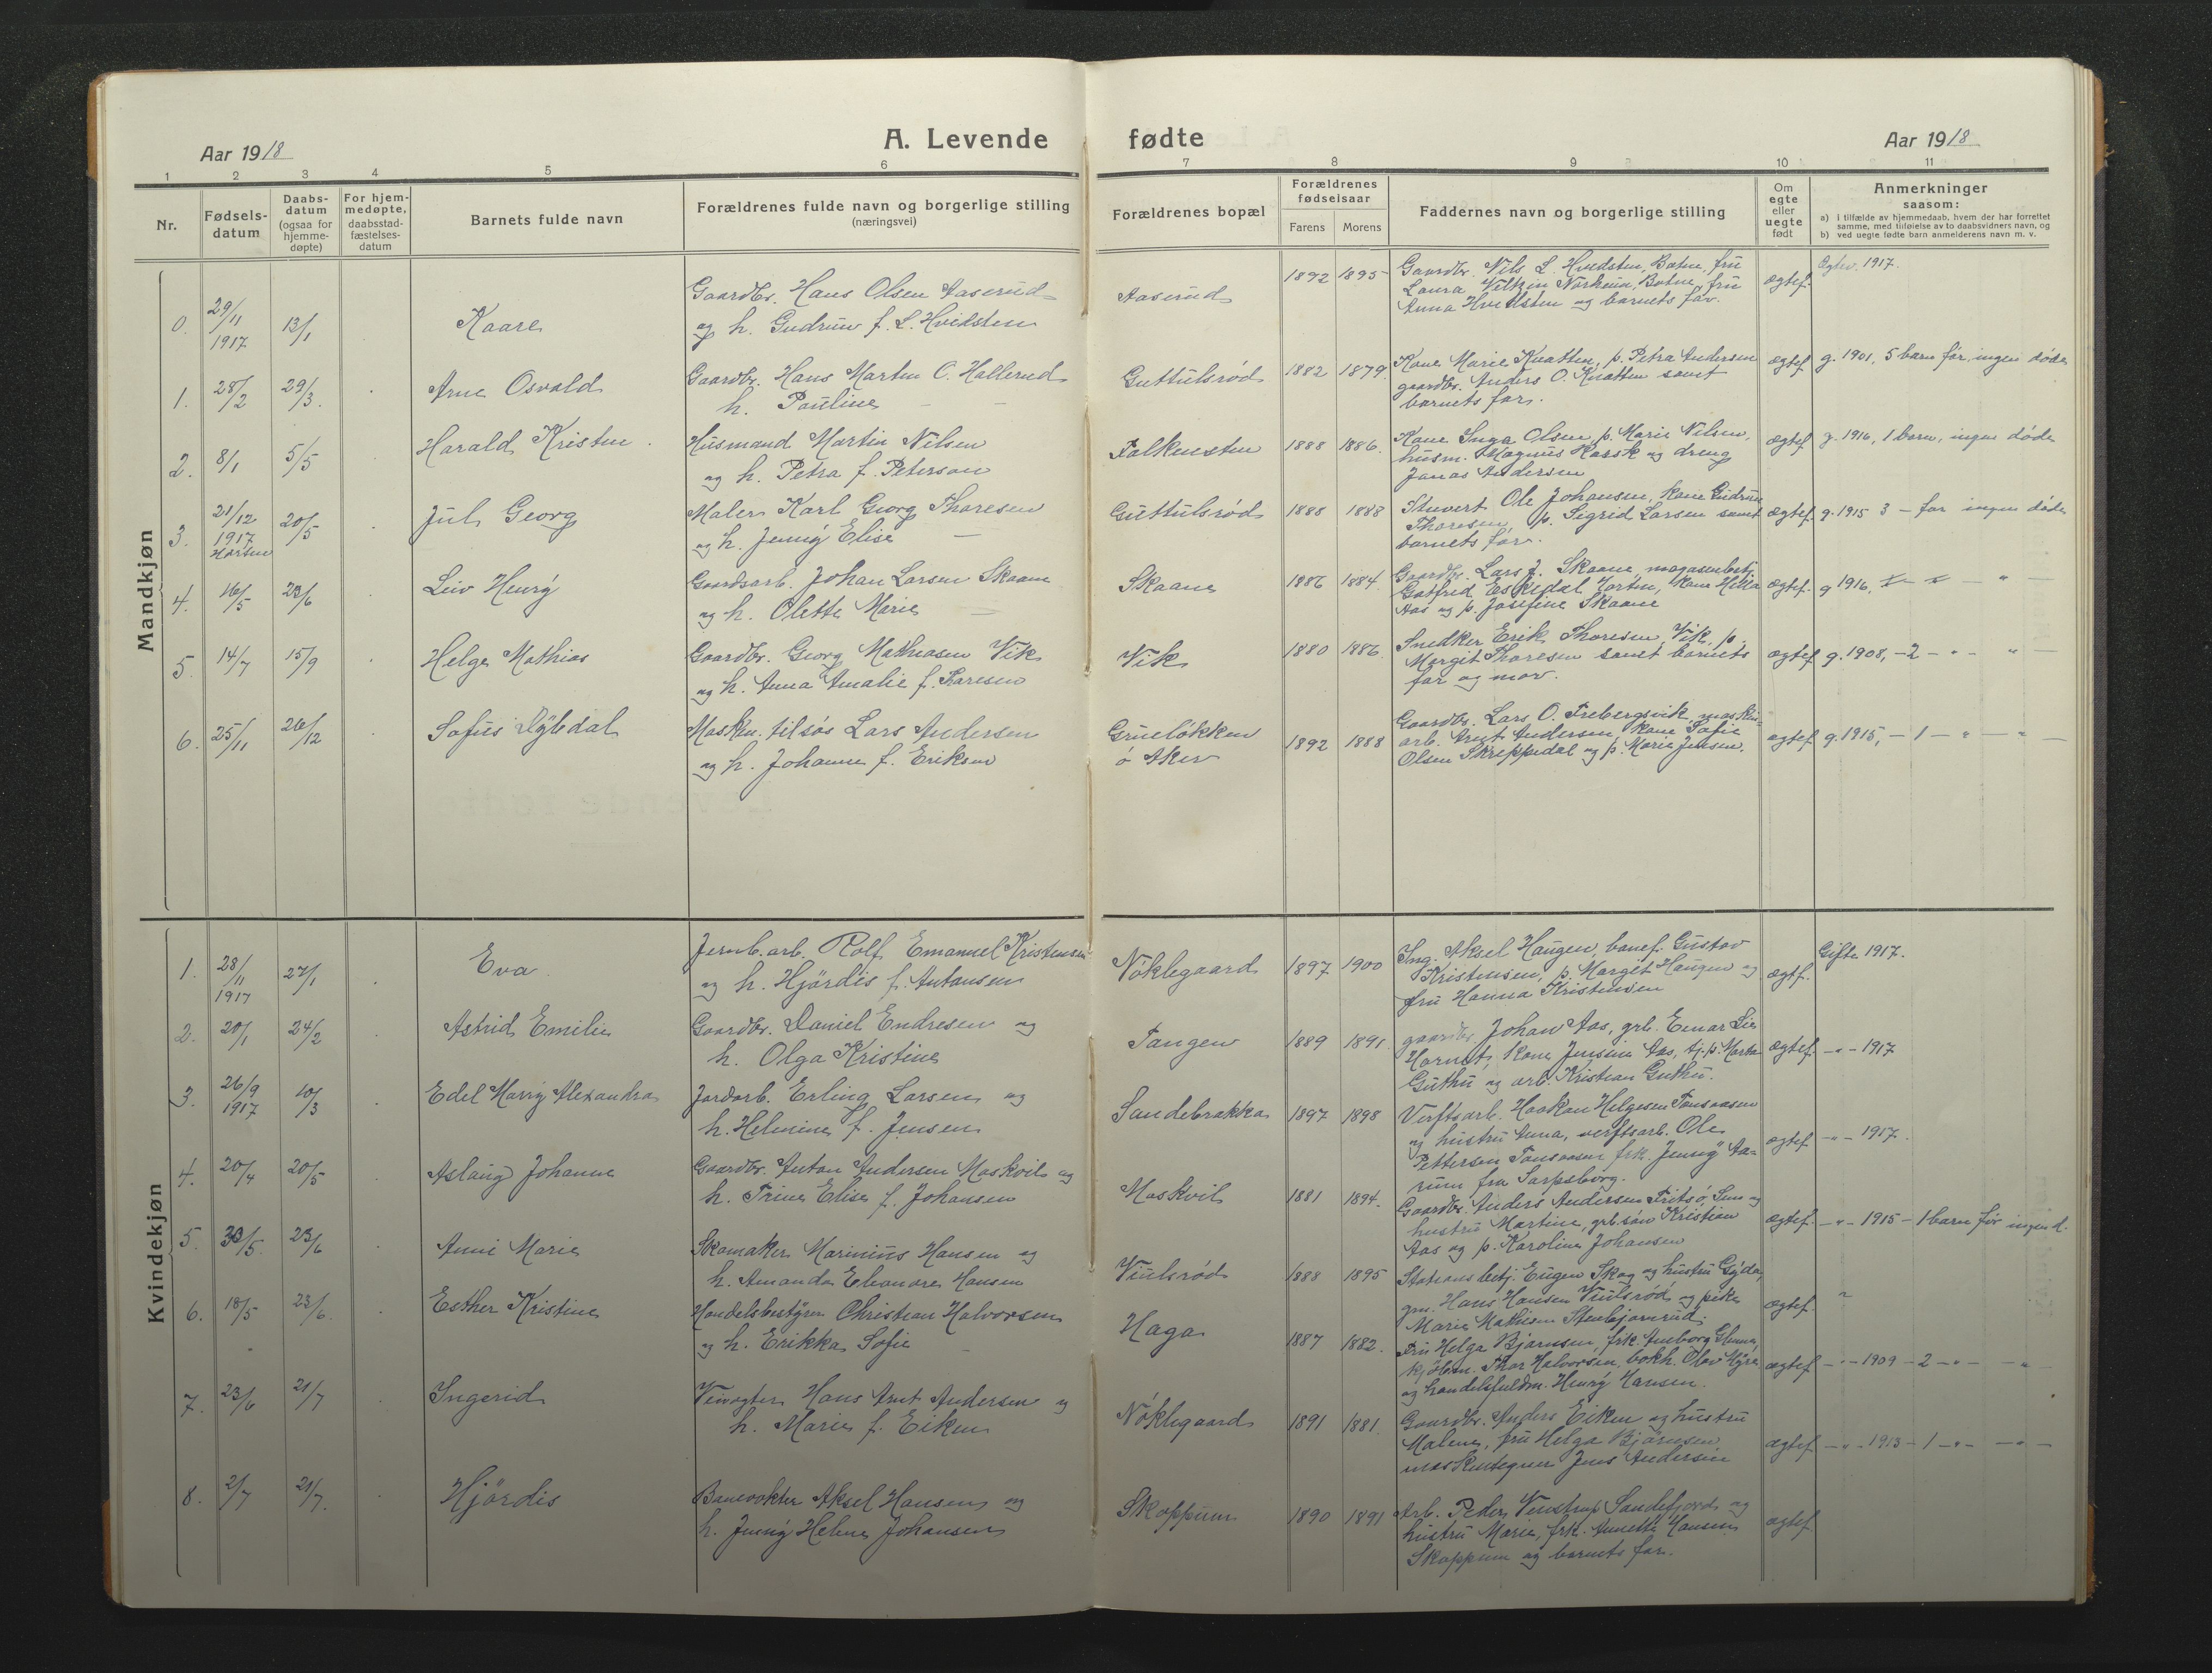 Aar 1918
A. Levende fødte
Aar 1918
1 2 3 4 5 6 7 8 9 10 11
Nr.
Fødsels-
datum
Daabs-
datum
(ogsaa for
hjemme-
døpte)
For hjem-
medøpte,
daabsstad-
fæstelses-
datum
Barnets fulde navn
Forældrenes fulde navn og borgerlige stilling
(næringsvei)
Forældrenes bopæl
Forældrenes
fødselsaar
Farens Morens
Faddernes navn og borgerlige stilling
Om
egte
eller
uegte
født
Anmerkninger
saasom:
a) i tilfælde av hjemmedaab, hvem der har forrettet
samme, med tilføielse av to daabsvidners navn, og
b) ved uegte fødte barn anmelderens navn m. v.
Mandkjøn
0. 29/11 1917 13/1 Kaare
Gaardbr. Hans Olsen Aaserud
og h. Gudrun f. L. Hvidsten
Aaserud 1892 1895
Gaardbr. Nils L. Hvidsten, Botne, fru
Laura Norheim, Botne, fru
Anna Hvidsten og barnets far.
ægtef. 1917.
1. 28/2 29/3. Arne Osvald
Gaardbr. Hans Martin O. Hallerud
h. Pauline —
Guttulsrød 1882 1879.
Kone Marie Knatten, p. Petra Andersen
gaardbr. Anders O. Knatten samt
barnets far.
ægtef. g. 1901, 5 barn før, ingen døde
2. 8/1 5/5 Harald Kristen.
Husmand Martin Nilsen
og h. Petra f. Peterson
Falkensten 1888 1886.
Kone Inga Olsen, p. Marie Nilsen,
husm. Magnus Karsk og dreng
Jonas Andersen
ægtef. g. 1916, 1 barn, ingen døde
3. 21/12 1917 Horten 20/5 Jul Georg
Maler Karl Georg Thoresen
og h. Jenny Elise —
Guttulsrød 1888 1888
Stuvert Ole Johansen, kone Gudrun
Thoresen, p. Sigrid Larsen samt
barnets far.
ægtef. g. 1915 3 — før ingen døde
4. 16/5 23/6 Leiv Henry
Gaardsarb. Johan Larsen Skaane
og h. Olette Marie —
Skaane 1886 1884.
Gaardbr. Lars J. Skaane, magasinbetj.
Gotfrid Eskedal, Horten, kone Hilda
Aas og p. Josefine Skaane
ægtef. g 1916,
5. 14/7 15/9 Helge Mathias
Gaardbr. Georg Mathiasen Vik
og h. Anna Amalie f. Karesen
Vik 1880 1886.
Snedker Erik Thoresen, Vik, p.
Margit Thoresen samt barnets
far og mor.
ægtef. g. 1908, — 2 — " — " —
6. 25/11 26/12 Sofus Dybdal
Maskin. tilsøs Lars Andersen
og h. Johanne f. Eriksen
Grueløkken
ö Aker
1892 1888
Gaardbr. Lars O. Frebergsvik, maskin-
arb. Arnt Andersen, kone Sofie
Olsen Skreppedal og p. Marie Jensen.
ægtef. g. 1915, — 1 — " — " —
Kvindekjøn
1. 28/11 1917 27/1 Eva.
Jernb.arb. Rolf Emanuel Kristensen
og h. Hjördis f. Antonsen
Nöklegaard 1897 1900
Ing. Aksel Haugen, banef. Gustav
Kristensen, p. Margit Haugen og
fru Hanna Kristensen
ægtf. Gifte 1917.
2. 20/1 24/2 Astrid Emilie
Gaardbr. Daniel Endresen og
h. Olga Kristine
Tangen 1889 1891.
gaardbr Johan Aas, grb. Einar Lie
kone Jensine Aas, tj.p. Marta
Guthu og arb. Kristian Guthu.
ægtef. — " — 1917
3. 26/9 1917 10/3 Edel Harry Alexandra
Jordarb. Erling Larsen og
h. Helmine f. Jensen
Sandebrakka 1897 1898
Verftsarb. Haakon Helgesen Tonsaasen
og hustru Anna, verftsarb. Ole
Pettersen Tonsaasen, frk. Jenny Aa-
rum fra Sarpsborg.
ægtef. — " — 1917.
4. 20/4 20/5 Aslaug Johanne
Gaardbr. Anton Andersen Moskvil og
h. Trine Elise f. Johansen
Moskvil 1881 1894.
Gaardbr. Anders Andersen Fritsö, Sem og
hustru Martine, grb.søn Kristian
Aas og p. Karoline Johansen
ægtef. — " — 1915 — 1 barn før ingen d.
5. 30/5. 23/6 Anni Marie
Skomaker Marinius Hansen og
h. Amanda Eleonore Hansen
Viulsrød 1888 1895
Stationsbetj. Eugen Skog og hustru Gyda,
grn. Hans Hansen Viulsrød og pike
Marie Mathisen Stenbjørnrud.
ægtef. "
6. 18/5 23/6. Esther Kristine
Handelsbestyrer Christian Halvorsen
og h. Erikka Sofie —
Haga 1887 1882.
Fru Helga Bjørnsen, frk. Amborg
kjöbm. Thor Halvorsen, bokh. Olav Myre
og handelsfuldm. Henry Hansen.
ægtef. — " — 1909 — 2 — " — " —
7. 23/6 21/7 Ingerid
Veivogter Hans Arnt Andersen og
h. Marie f. Eiken
Nöklegaard 1891 1881.
Gaardbr. Anders Eiken og hustru
Malene, fru Helga Bjørnsen
maskintegner Jens Andersen
ægtef. — " — 1913 — 1 — " — " —
8. 2/7 21/7. Hjördis
Banevokter Aksel Hansen og
h. Jenny Helene Johansen
Skoppum 1890 1891
Arb. Peder Venstrup Sandefjord og
hustru Marie, frk. Annette Hansen
Skoppum og barnets far.
ægtef